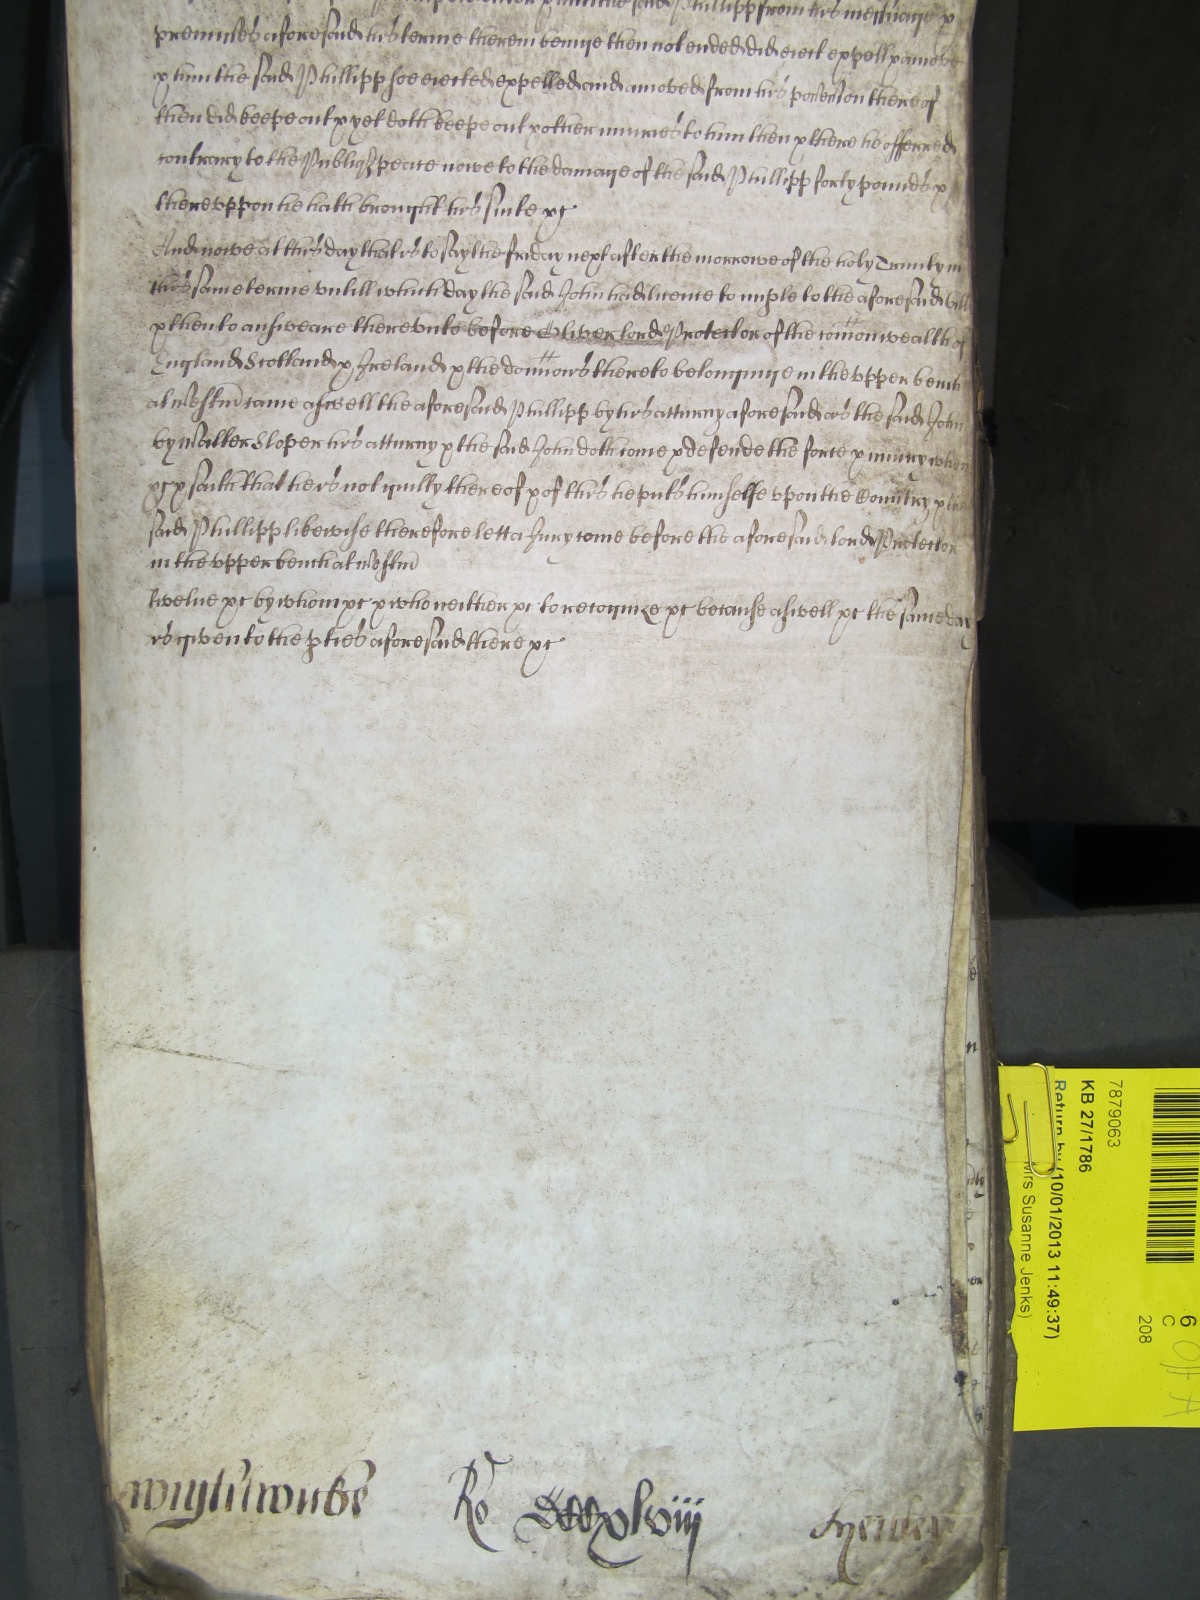 said Phillipp from his messuage &
premisses aforesaid his terme therein beinge then not ended did eiect expell & amove
& him the said Phillipp soe eiected expelled and amoved from his possession thereof
then did keepe out & yet doth keepe out & other iniuries to him then & there he offerred
contrary to the Publiq peace nowe to the damage of the said Phillipp forty pounds &
therevppon he hath brought his suite &c
And nowe at this day that is to say the friday next after the morrowe of the holy Trinity in
this same terme vntill which day the said John had licence to imple to the aforesaid bill
& then to answeare therevnto before Oliver lord Protector of the comonwealth of
England Scotland & Ireland & the dominions thereto belonginge in the vpper bench
at Westm came aswell the aforesaid Phillipp by his atturny aforesaid as the said John
by Walter Sloper his atturny & the said John doth come & defende the force & iniury when
&c & saith That he is not guilty thereof & of this he puts himselfe vpon the Country & the
said Phillipp likewise therefore lett a Jury come before the aforesaid lord Protector
in the vpper bench at Westm
twelve &c by whom &c & who neither &c to recognize &c because aswell &c the same day
is given to the pties aforesaid there &c
Ro
xlviij
Henley
7879063
KB 27/1786
Return by (10/01/2013 11:49:37)
Mrs Susanne Jenks)
6
C
208